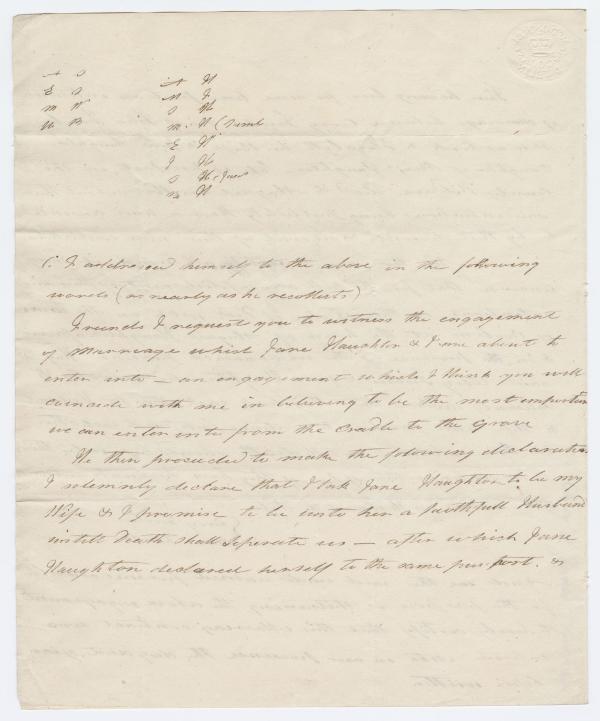 A S
E S
M W
W B
A H
M F
S H
M. H (Saml
E H
J H
S H. Junr
B H
C. F addressed himself to the above in the following
words (as nearly as he recollects)
Friends I request you to witness the engagement
of Marriage which Jane Haughton & I are about to
enter into — an engagement which I think you will
coincide with me in believing to be the most important
we can enter into from the Cradle to the Grave
He then proceeded to make the following declaration
I solemnly declare that I take Jane Haughton to be my
Wife & I promise to be unto her a faithfull Husband
untill Death shall seperate us — after which Jane
Haughton declared herself to the same purport. &